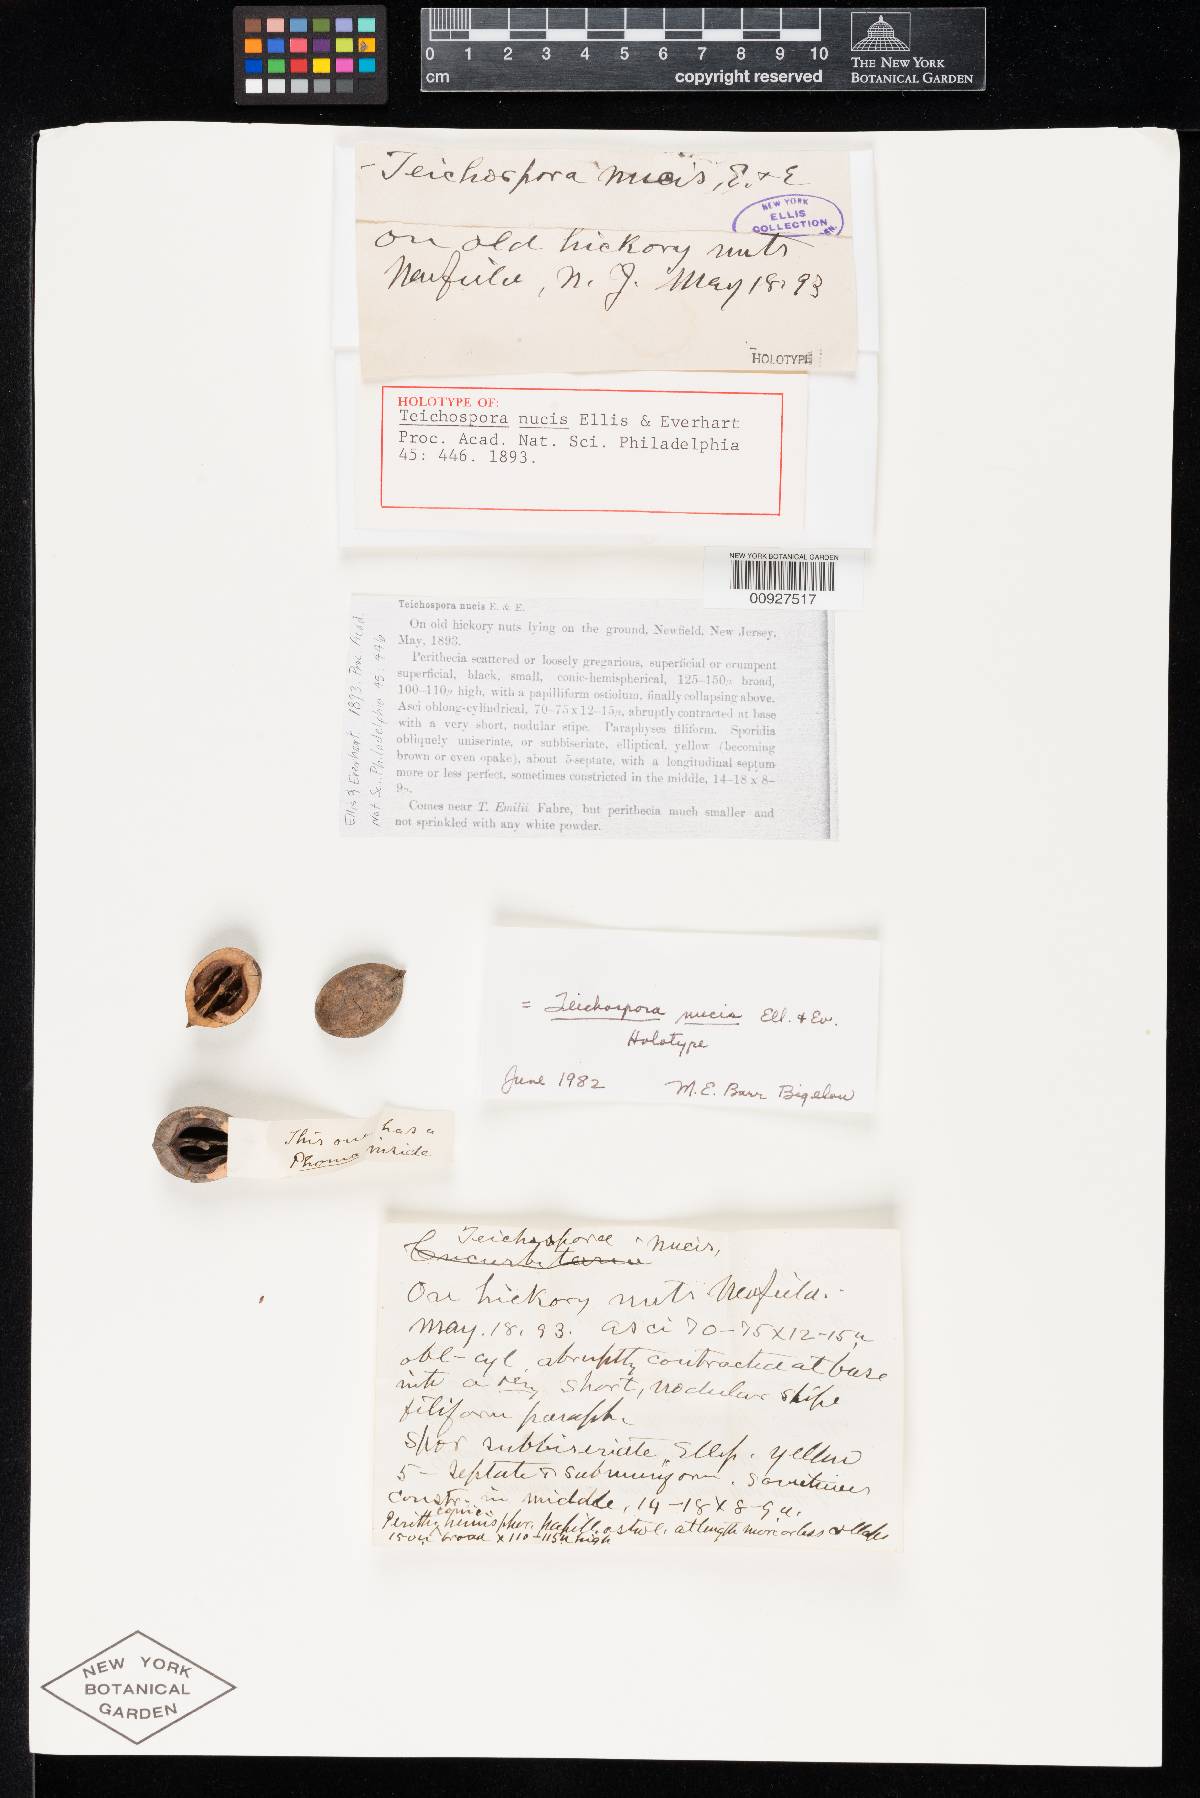 0 1 2 3 4 5 6 7 8 9 10
cm
copyright reserved
THE NEW YORK
BOTANICAL GARDEN
- Teichospora nucis, E. & E
NEW YORK
ELLIS
COLLECTION
on old hickory nuts
Newfield, N. J. May 18. 93
HOLOTYPE
HOLOTYPE OF:
Teichospora nucis Ellis & Everhart
Proc. Acad. Nat. Sci. Philadelphia
45: 446. 1893.
NEW YORK BOTANICAL GARDEN
00927517
Ellis & Everhart 1893. Proc. Acad.
Nat. Sci. Philadelphia 45: 446
Teichospora nucis E. & E.
On old hickory nuts lying on the ground, Newfield, New Jersey,
May, 1893.
Perithecia scattered or loosely gregarious, superficial or erumpent
superficial, black, small, conic-hemispherical, 125–150µ broad,
100–110µ high, with a papilliform ostiolum, finally collapsing above.
Asci oblong-cylindrical, 70–75 x 12–15µ, abruptly contracted at base
with a very short, nodular stipe. Paraphyses filiform. Sporidia
obliquely uniseriate, or subbiseriate, elliptical, yellow (becoming
brown or even opake), about 5-septate, with a longitudinal septum
more or less perfect, sometimes constricted in the middle, 14–18 x 8–
9µ.
Comes near T. Emilii Fabre, but perithecia much smaller and
not sprinkled with any white powder.
= Teichospora nucis Ell. & Ev.
Holotype
June 1982 M. E. Barr Bigelow
This one has a
Phoma inside
Teichospora nucis,
Cucurbitaria
On hickory nuts Newfield.-
May. 18. 93. asci 70-75 x 12-15µ
obl-cyl, abruptly contracted at base
into a very short, nodular stipe
filiform paraph.
Spor subbiseriate, Ellip. yellow
5- septate & submuriform. sometimes
constr. in middle, 14-18 x 8-9µ.
Perith. conic hemispher. papill. ostiol. at length more or less collaps
150µ broad x 110-115µ high
NEW YORK
BOTANICAL
GARDEN